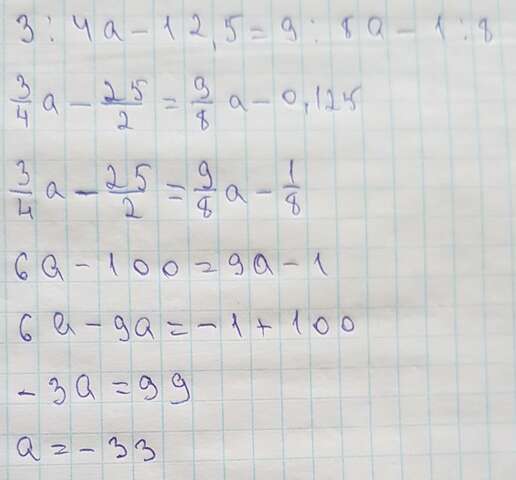 3 : 4a - 12,5 = 9 : 8a - 1 : 8
3/4 a - 25/2 = 9/8 a - 0,125
3/4 a - 25/2 = 9/8 a - 1/8
6a - 100 = 9a - 1
6a - 9a = -1 + 100
-3a = 99
a = -33